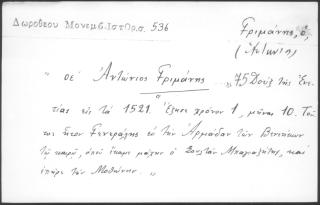 Δωροθεου Μονεμβ. Ιστορ. σ. 536
Γριμάνης, ὁ,
(Ἀντώνιος)
" οε' Ἀντώνιος Γριμάνης ... 75 Δούξ τῆς Ἐνε-
τίας εἰς τὰ 1521. Ἔζησε χρόνον 1, μῆνας 10. Τοῦ-
τος ἦτον Γενεράλης εἰς τὴν Ἁρμάδαν τῶν Βενετικῶν
τῷ καιρῷ, ὁποῦ ἔκαμε μάχην ὁ Σουλτάν Μπαγιαζήτης, καὶ
ἐπῆρε τὴν Μοθώνην. "